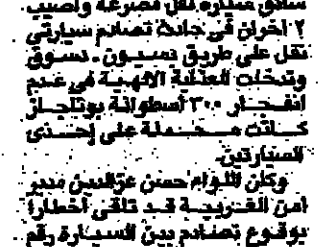 سائق سيارة نقل مصرعه وأصيب
٢ آخران في حادث تصادم سيارتي
نقل على طريق بسيون ـ دسوق
وتدخلت العناية الإلهية في عدم
انفجار ٣٠٠ اسطوانة بوتاجاز
كانت محملة على إحدى
السيارتين.
وكان اللواء حسن عز الدين مدير
أمن الغربية قد تلقى إخطارا
بوقوع تصادم بين السيارة رقم